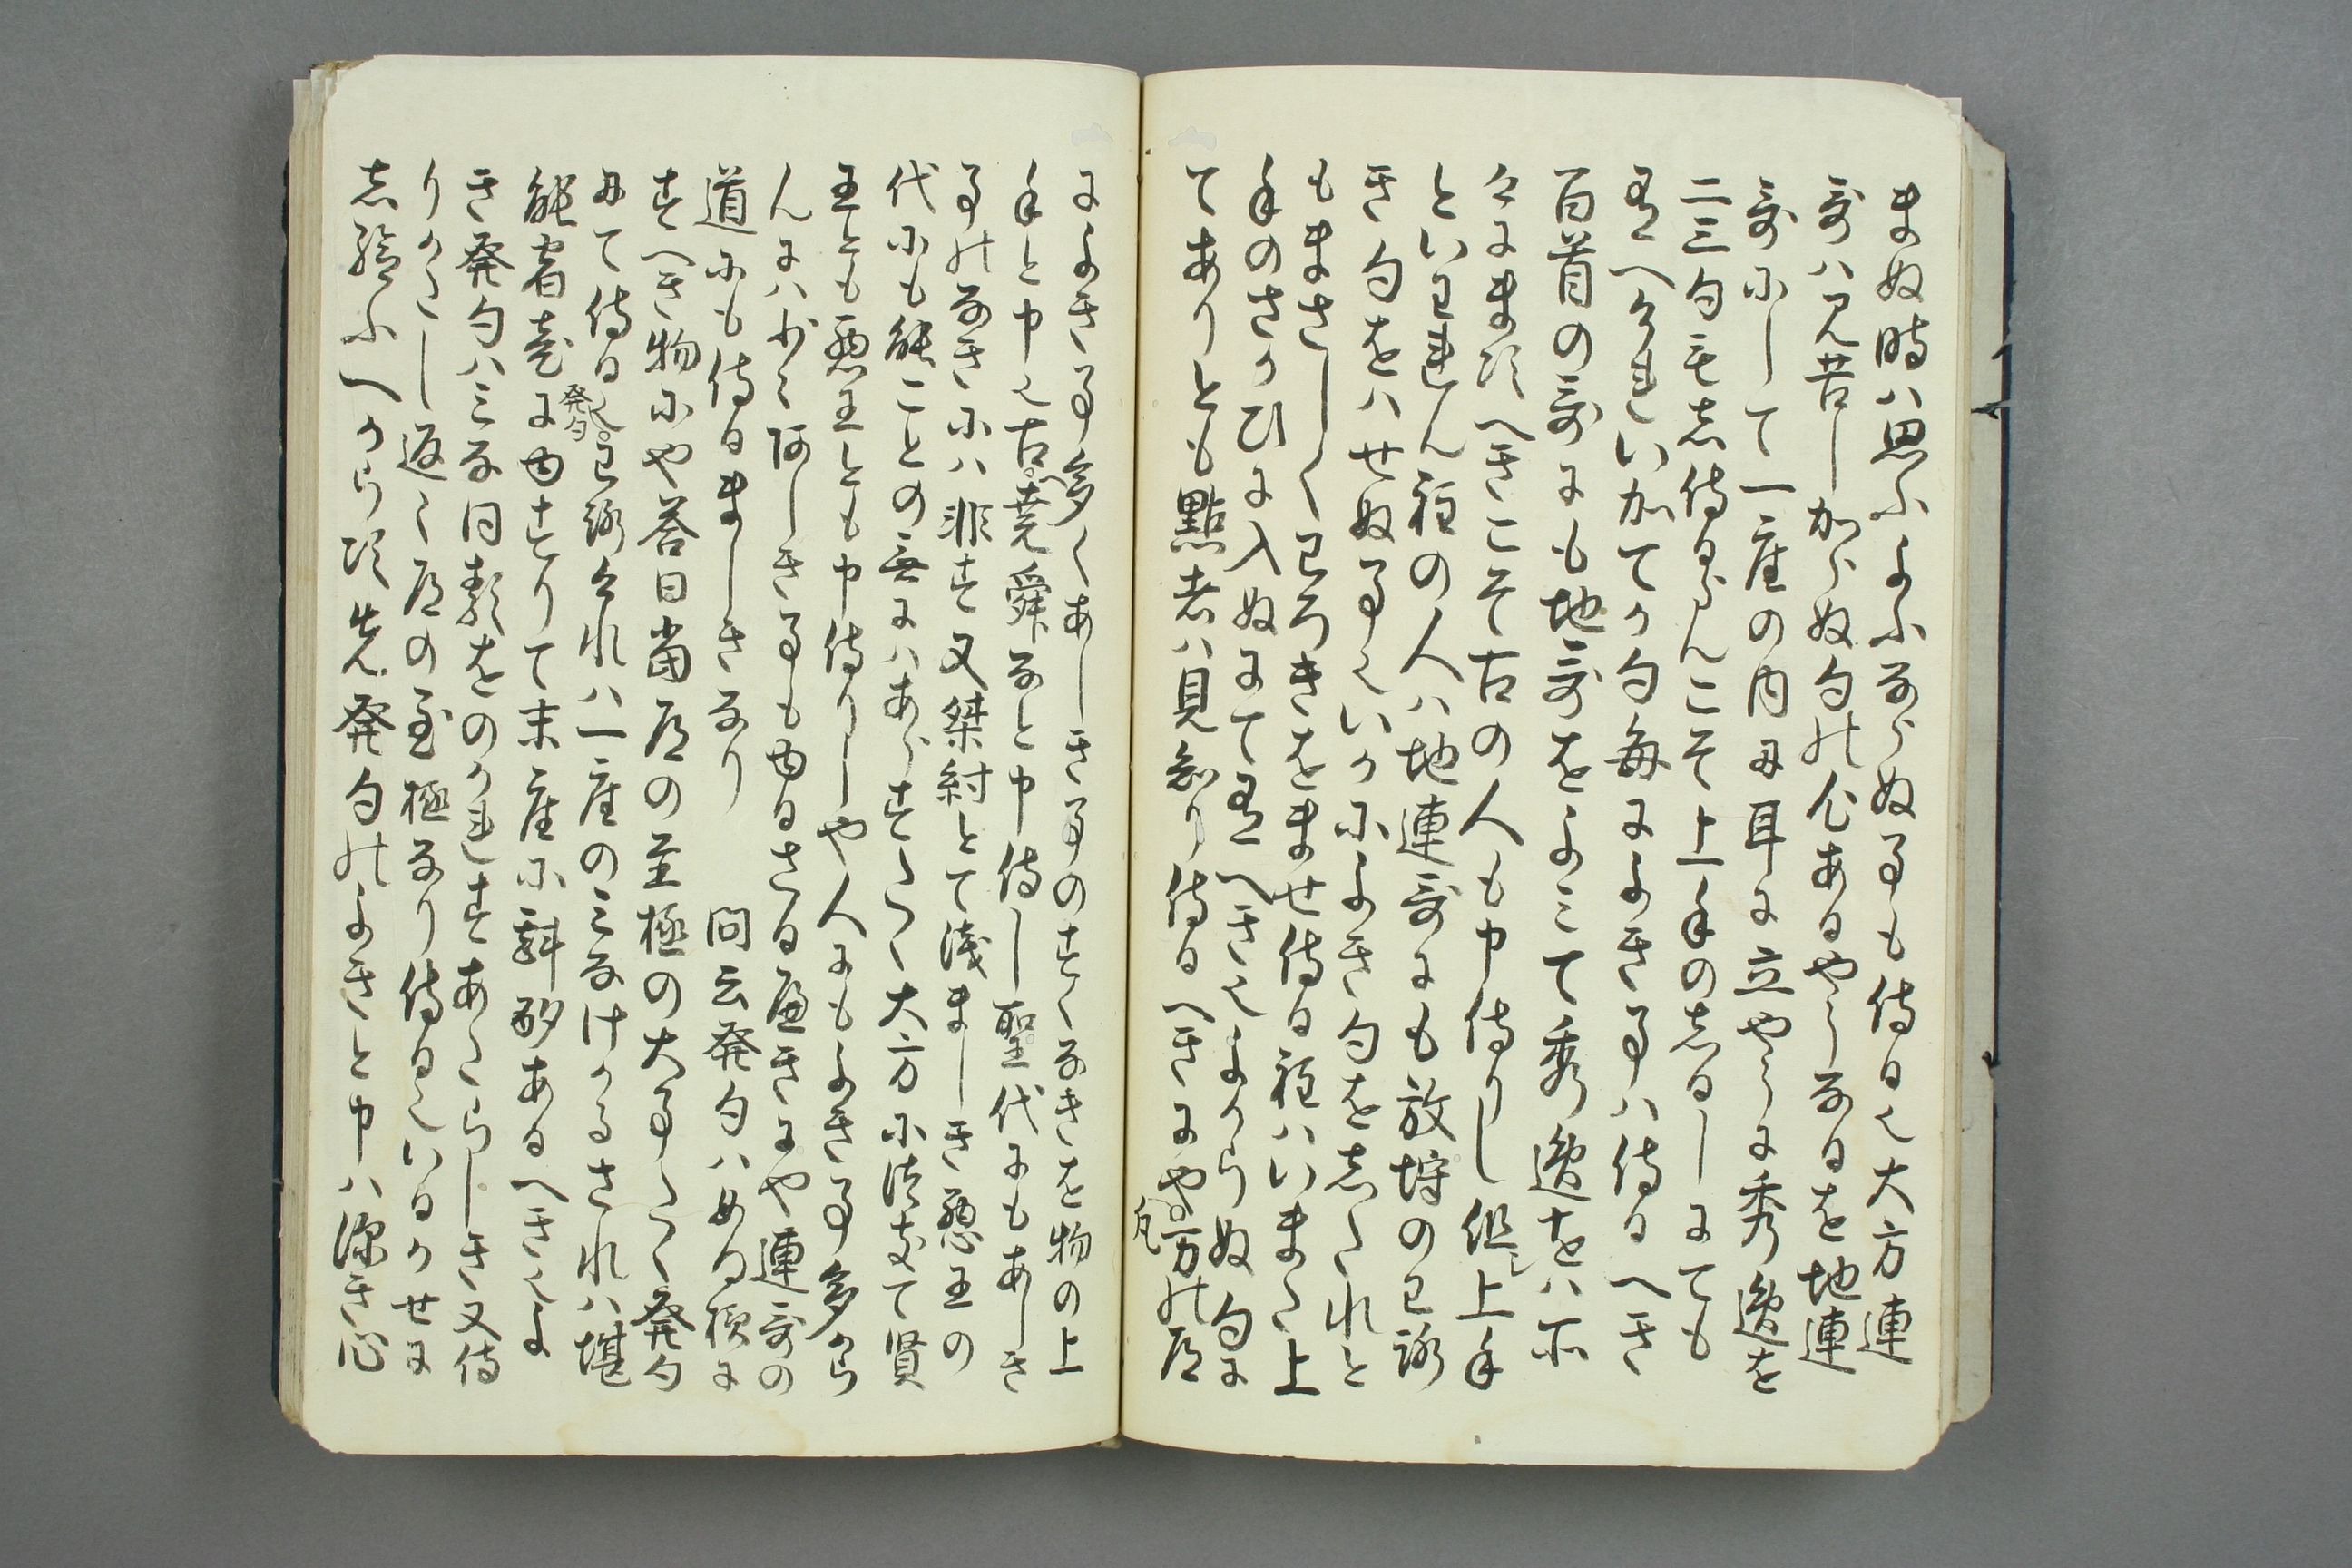 まぬ時ハ思ふふしならぬ事も侍る也大方連
哥ハ見苦しからぬ句の心あるやうなるを地連
哥にして一座の内に耳に立やうに秀逸を
二三句も志侍らんこそ上手のしるしにても
有へけれいかてか句毎によき事ハ侍るへき
百首の哥にも地哥をよミて秀逸をハ不
々にますへきこそ古の人も申侍りし但上手
といはれん程の人ハ地連哥にも放埒の已詠
き句をハせぬ事也いかによき句を志たれと
もまさしくわろきをませ侍る程ハいまた上
手のさかひに入ぬにて有へき也よからぬ句に
てありとも點者ハ見知り侍るへきにや凡万の道
によき事多くあしき事のすくなきを物の上
手と申也古尭舜なと申侍し聖代にもあしき
事のなきにハ非す又桀紂とて浅ましき悪王の
代にも能ことの無にハあらすたゝ大方に付て賢
王とも悪王とも申侍りしや人にもよき事多から
んにハ少々悪しき事もゆるさる麁きにや連哥の
道にも侍るましきなり 問云発句ハいかる様に
すへき物にや答曰当道の至極の大事たゝ発句
にて侍る也発句わろけれハ一座のミなけかるされハ堪
能宿老にゆすりて末座に斟酌あるへき也よ
き発句ハミな同類をのかれすあたらしき又侍
りかたし返々道の至極なり侍る也いるかせに
志給ふへからす先発句のよきと申ハ深き心